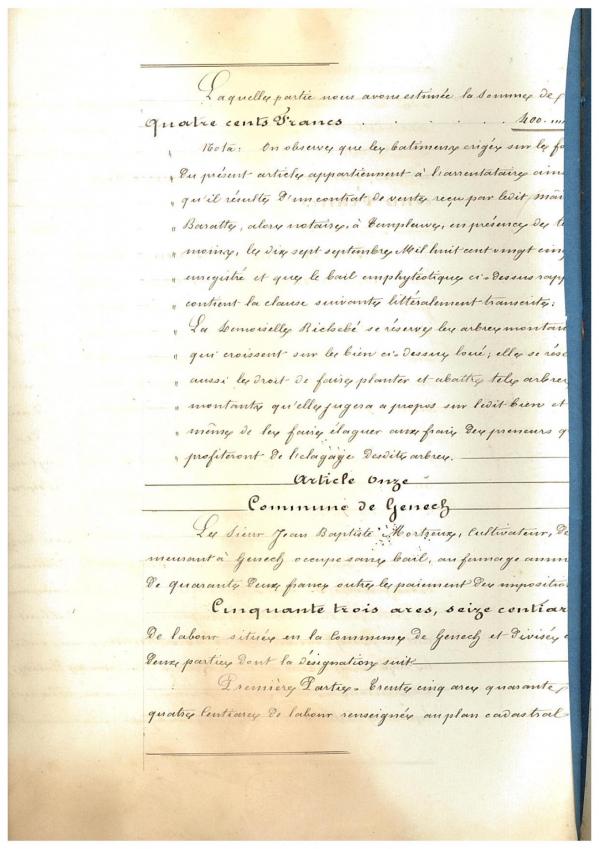 Laquelle partie nous avons estimée la somme de
Quatre cents Francs . . . . . . 400.
" Nota: On observe que les batimens erigés sur le
" Du présent article appartiennent à l'arrentataire ainsi
" qu'il résulte D'un contrat de vente reçu par ledit
" Baratte, alors notaire, à Templeuve, en présence de
" moins, le dix sept septembre Mil huit cent vingt cinq
" enregistré et que le bail emphytéotique ci-dessus
" contient la clause suivante littéralement transcrite:
" La Demoiselle Richebé se réserve les arbres montan
" qui croissent sur les bien ci-dessus loué; elle se
" aussi le droit de faire planter et abattre tels arbres
" montants qu'elle jugera a propos sur ledit bien et
" même de les faire élaguer aux frais des preneurs q
" profiteront de l'elagage desdits arbres.
Article Onze
Commune de Genech
Le Sieur Jean Baptiste Mortreux, Cultivateur, De
meurant à Genech occupe sans bail, au fermage annu
De quarante Deux francs outre le paiement Des imposition
Cinquante trois ares, seize centiar
De labour située en la Commune de Genech et divisée
Deux parties dont la désignation suit
Première Partie. Trente cinq ares quarante
quatre Centiares De labour renseignée au plan cadastral